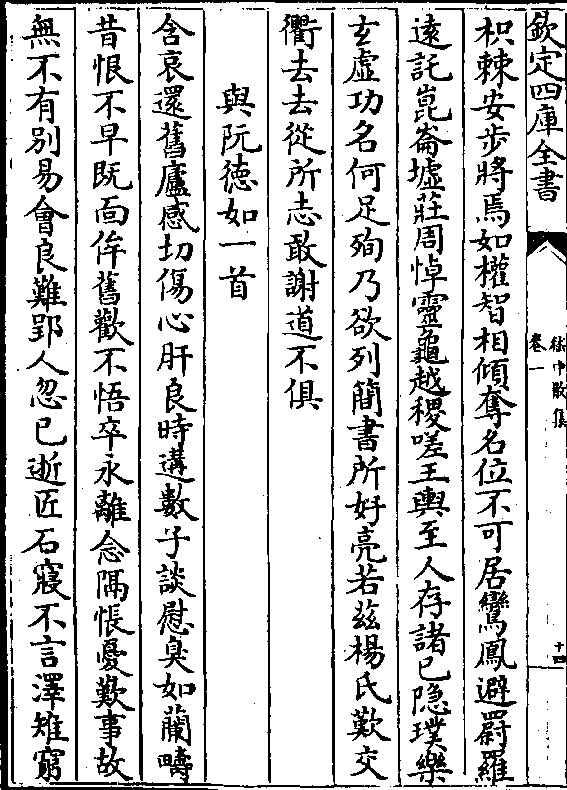 欽定四庫全書
嵇中散集
卷一
十四
枳棘安步將焉如權智相傾奪名位不可居鸞鳳避罻羅
遠託崑崙墟莊周悼靈龜越稷嗟王輿至人存諸己隐璞樂
玄虛功名何足殉乃欲列簡書所好亮若兹楊氏歎交
衢去去從所志敢謝道不俱
與阮德如一首
含哀還舊廬感切傷心肝良時遘數子談慰臭如蘭疇
昔恨不早既面侔舊歡不悟卒永離念隔悵憂歎事故
無不有别易㑹良難郢人忽已逝匠石寢不言澤雉窮